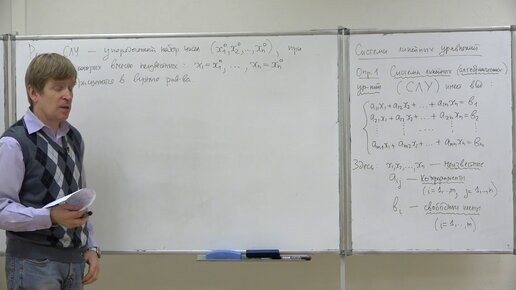 СЛУ — упорядоченный набор чисел (x₁⁰, x₂⁰, ..., xₙ⁰), при
вместо неизвестных: x₁ = x₁⁰, ..., xₙ = xₙ⁰
в верные рав-ва.
Системы линейных уравнений
Опр.1 Система линейных (алгебраических)
ур-ний (СЛУ) имеет вид:
a₁₁x₁ + a₁₂x₂ + ... + a₁ₙxₙ = b₁
a₂₁x₁ + a₂₂x₂ + ... + a₂ₙxₙ = b₂
. . . . .
aₘ₁x₁ + aₘ₂x₂ + ... + aₘₙxₙ = bₘ
Здесь x₁, x₂, ..., xₙ — неизвестные
aᵢⱼ — коэффициенты
(i=1,..,m, j=1,..,n)
bᵢ — свободные члены
(i=1,..,m)